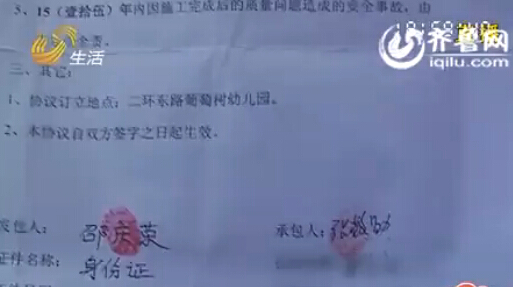 3、15（壹拾伍）年内因施工完成后的质量问题造成的安全事故，由
全责。
直播
齐鲁网
iqilu.com
生活
三、其它：
1、协议订立地点：二环东路葡萄树幼儿园。
2、本协议自双方签字之日起生效。
发包人：邵庆荣
承包人：张
证件名称：身份证